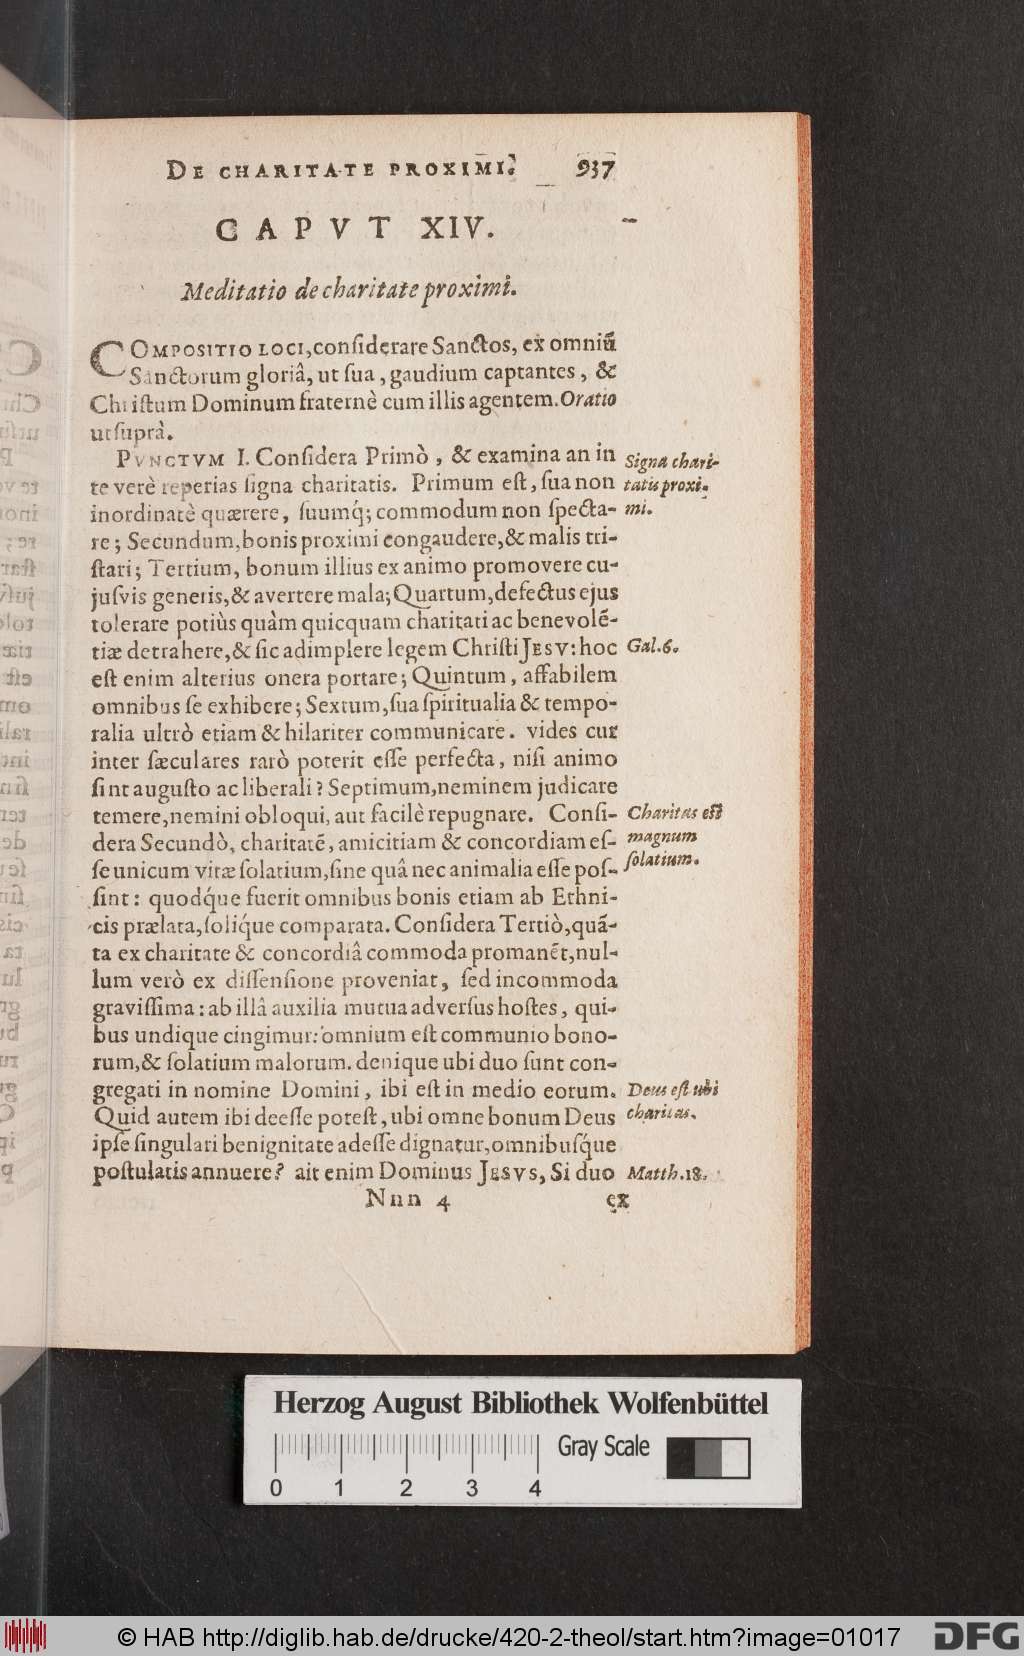 DE CHARITATE PROXIMI. 937
CAPVT XIV.
Meditatio de charitate proximi.
COMPOSITIO LOCI, conſiderare Sanctos, ex omniũ
Sanctorum gloriâ, ut ſua, gaudium captantes, &
Chriſtum Dominum fraternè cum illis agentem. Oratio
ut ſuprà.
PVNCTVM I. Conſidera Primò, & examina an in
te verè reperias ſigna charitatis. Primum eſt, ſua non
inordinatè quærere, ſuumq́; commodum non ſpecta-
re; Secundum, bonis proximi congaudere, & malis tri-
ſtari; Tertium, bonum illius ex animo promovere cu-
juſvis generis, & avertere mala; Quartum, defectus ejus
tolerare potiùs quàm quicquam charitati ac benevolẽ-
tiæ detrahere, & ſic adimplere legem Chriſti JESV: hoc
eſt enim alterius onera portare; Quintum, affabilem
omnibus ſe exhibere; Sextum, ſua ſpiritualia & tempo-
ralia ultrò etiam & hilariter communicare. vides cur
inter ſæculares rarò poterit eſſe perfecta, niſi animo
ſint auguſto ac liberali? Septimum, neminem judicare
temere, nemini obloqui, aut facilè repugnare. Conſi-
dera Secundò, charitatẽ, amicitiam & concordiam eſ-
ſe unicum vitæ ſolatium, ſine quâ nec animalia eſſe poſ-
ſint: quodq́ue fuerit omnibus bonis etiam ab Ethni-
cis prælata, ſoliq́ue comparata. Conſidera Tertiò, quã-
ta ex charitate & concordiâ commoda promanẽt, nul-
lum verò ex diſſenſione proveniat, ſed incommoda
graviſſima: ab illâ auxilia mutua adverſus hoſtes, qui-
bus undique cingimur: omnium eſt communio bono-
rum, & ſolatium malorum. denique ubi duo ſunt con-
gregati in nomine Domini, ibi eſt in medio eorum.
Quid autem ibi deeſſe poteſt, ubi omne bonum Deus
ipſe ſingulari benignitate adeſſe dignatur, omnibuſq́ue
poſtulatis annuere? ait enim Dominus JESVS, Si duo
Nnn 4 ex
Signa chari-
tatis proxi-
mi.
Gal. 6.
Charitas eſt
magnum
ſolatium.
Deus eſt ubi
charitas.
Matth. 18.
Herzog August Bibliothek Wolfenbüttel
Gray Scale
0 1 2 3 4
© HAB http://diglib.hab.de/drucke/420-2-theol/start.htm?image=01017
DFG